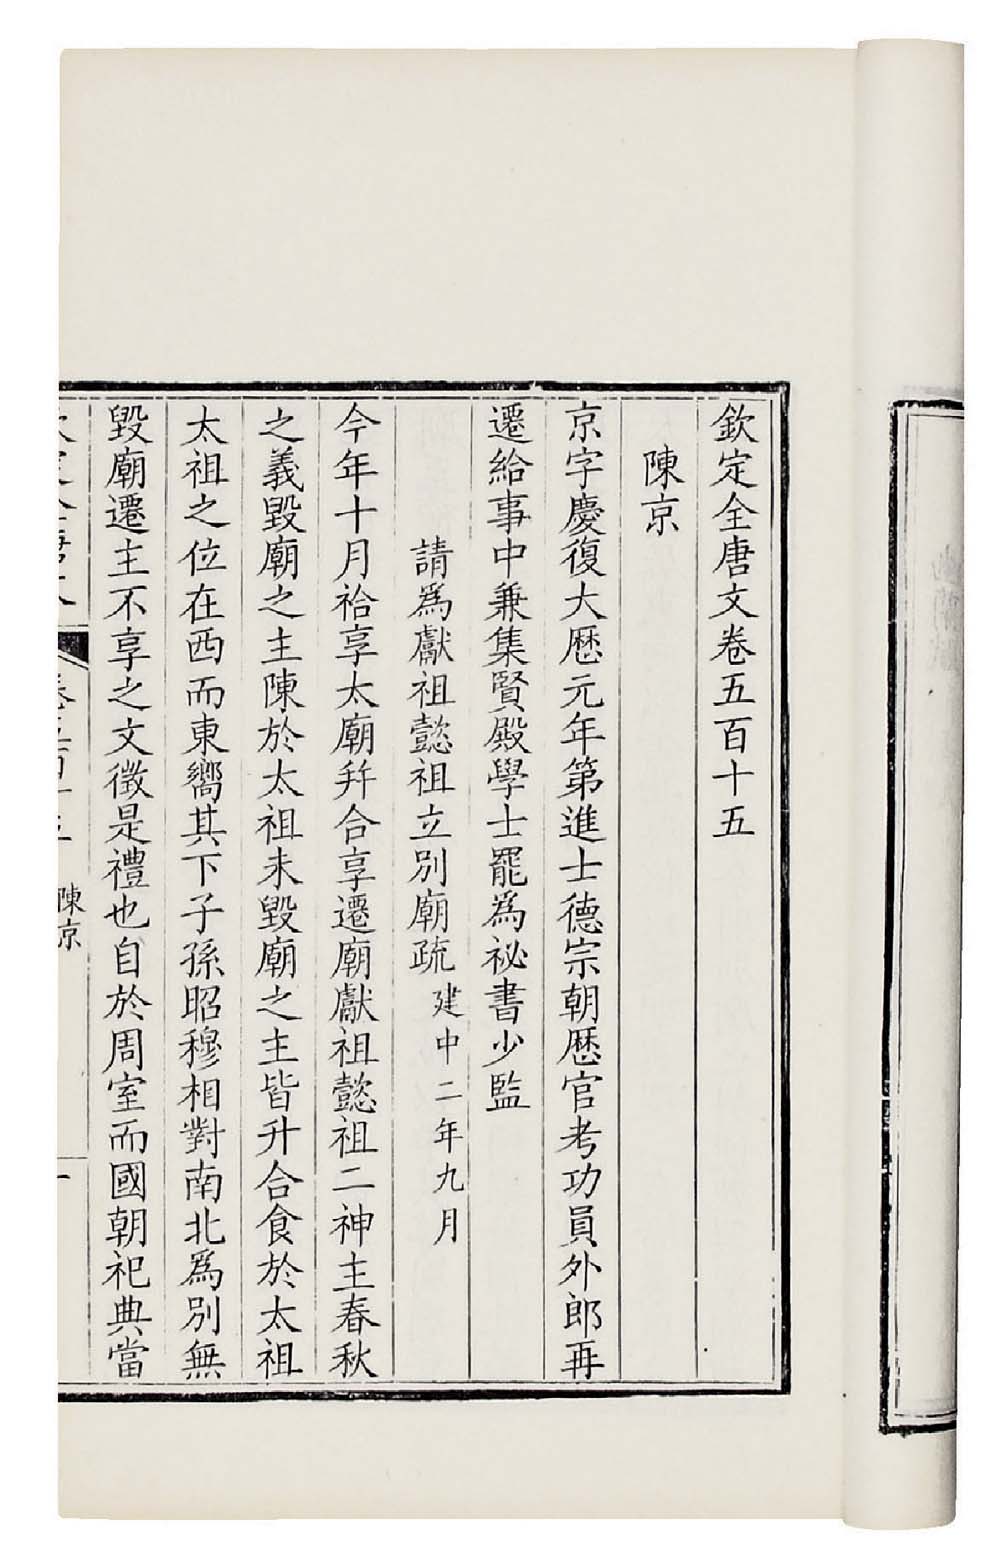 欽定全唐文卷五百十五
陳京
京字慶復大厯元年第進士德宗朝厯官考功員外郎再
遷給事中兼集賢殿學士罷爲祕書少監
請爲獻祖懿祖立別廟疏 建中二年九月
今年十月祫享太廟幷合享遷廟獻祖懿祖二神主春秋
之義毀廟之主陳於太祖未毀廟之主皆升合食於太祖
太祖之位在西而東嚮其下子孫昭穆相對南北爲別無
毀廟遷主不享之文徵是禮也自於周室而國朝祀典當
陳京
一